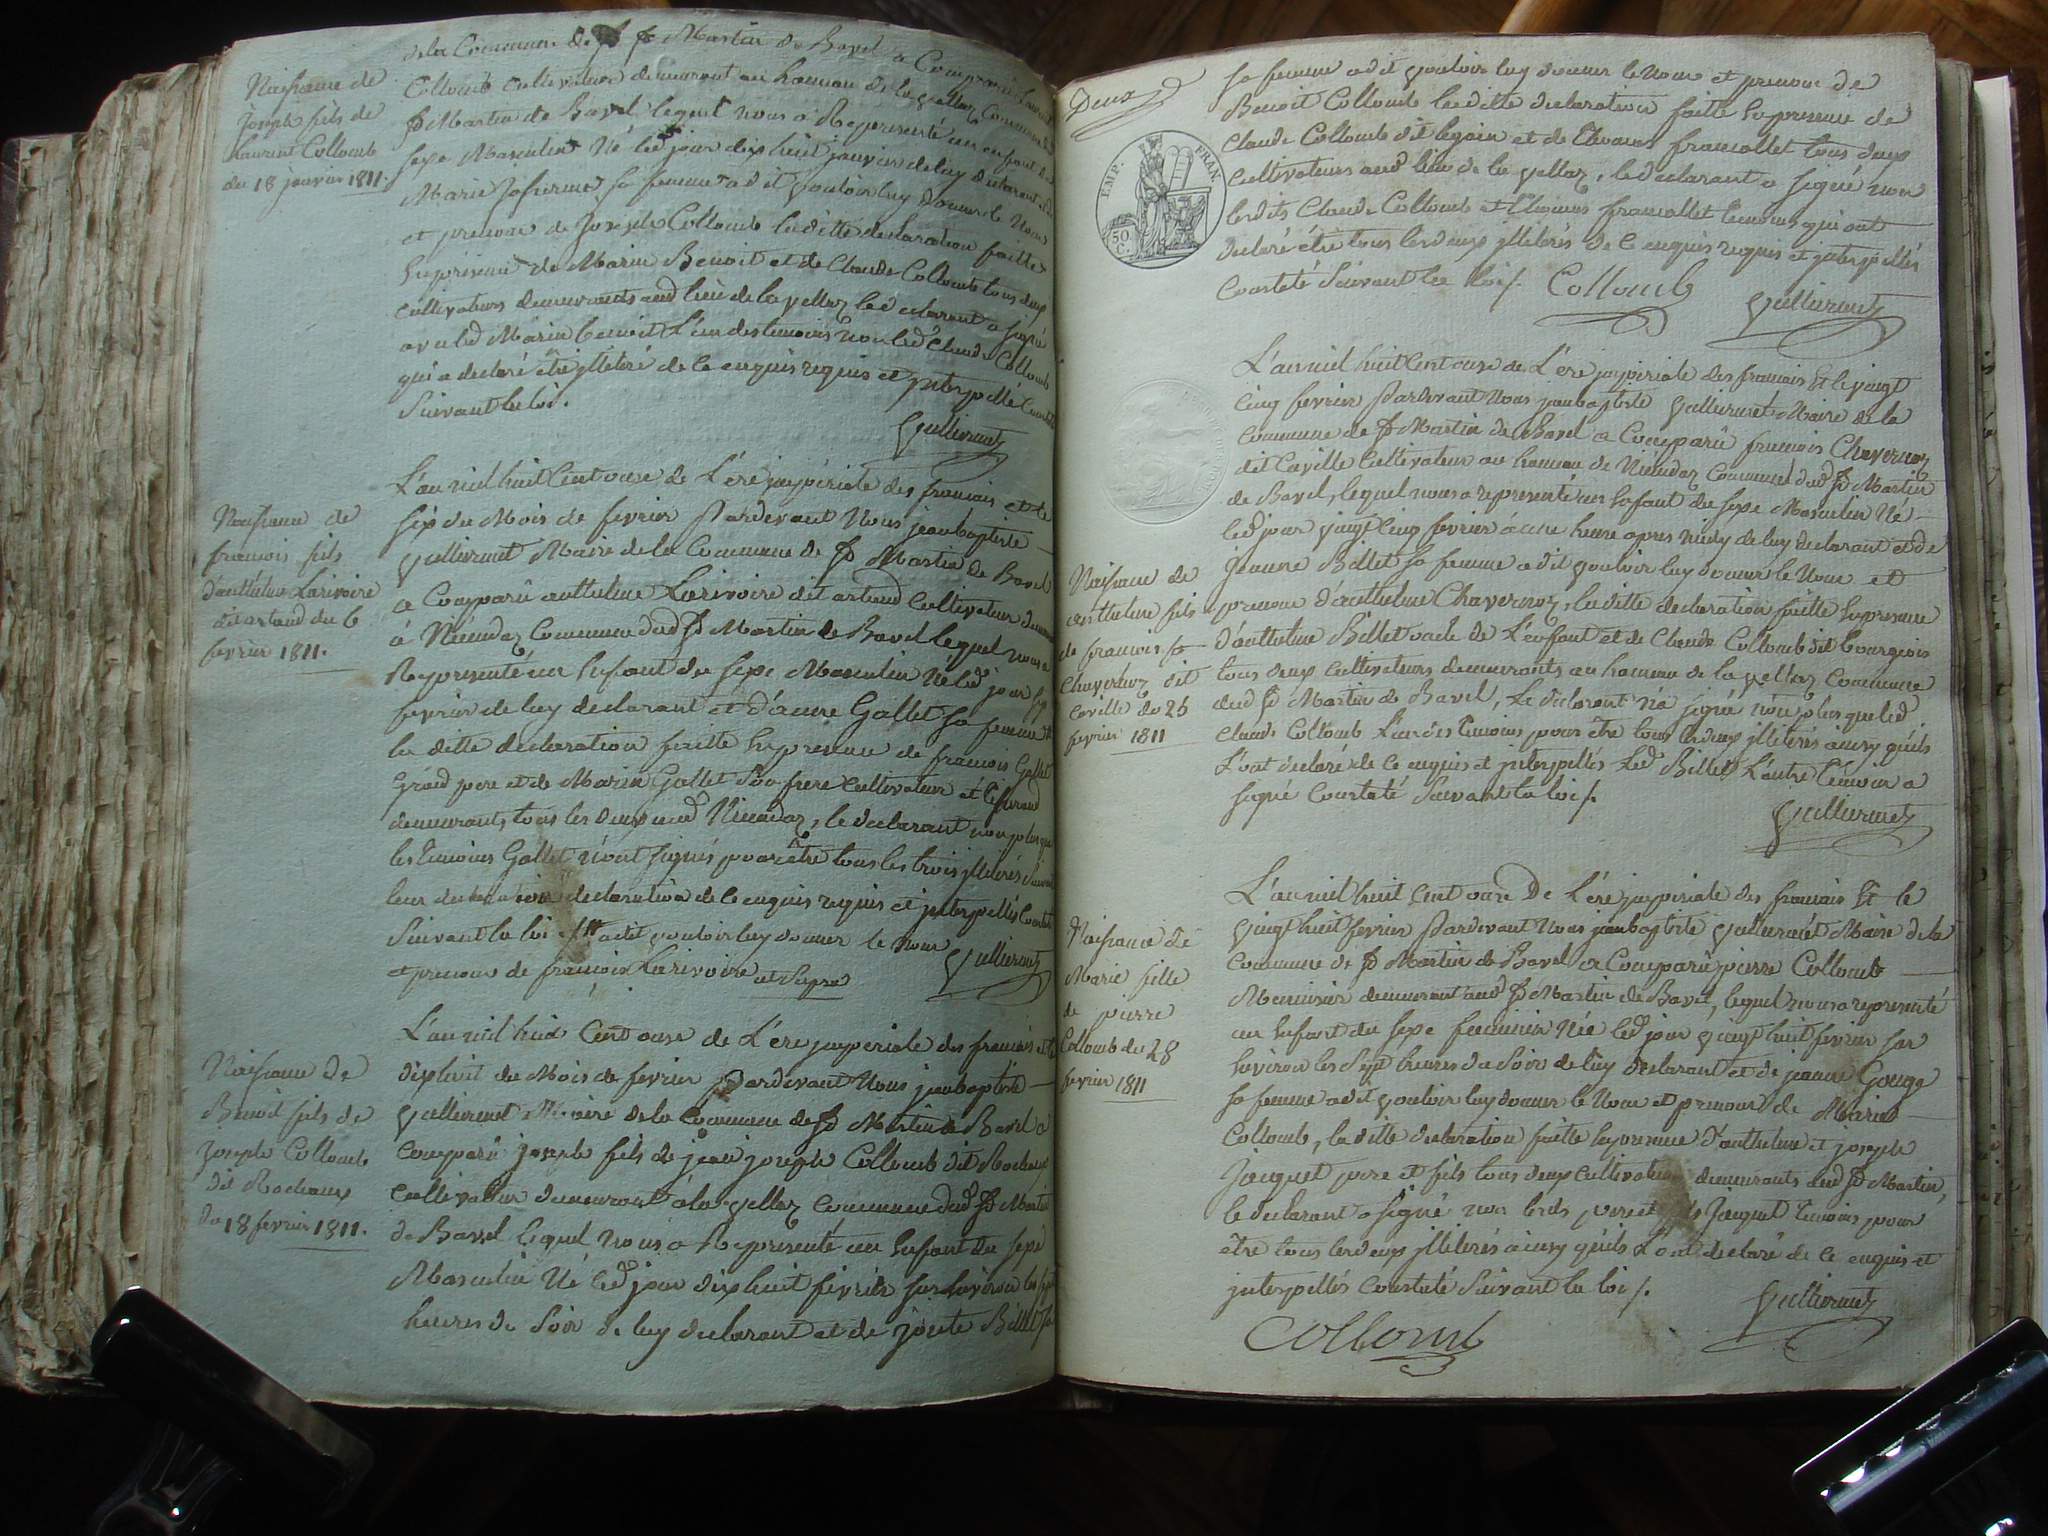 de la Commune de St Martin de Bavel a Comparu Laurent
Collomb Cultivateur demeurant au hameau de la vellaz Commune de
St Martin de Bavel lequel nous a Representé un enfant du
sexe Masculin Né led jour dix huit janvier de luy declarant et de
Marie sa femme a dit vouloir luy donner le Nom
et prenom de Joseph Collomb la ditte declaration faitte
en presence de Marin Benoit et de Claude Collomb tous deux
cultivateurs demeurants aud lieu de la vellaz le declarant a signé
avec led Marin benoit L'un des temoins non led Claude Collomb
qui a declaré être illeteré de ce enquis requis et interpellé Constaté
Suivant la loi.
Vulliermet
Naissance de
Joseph fils de
Laurent Collomb
du 18 janvier 1811.
L'an mil huit Cent onze de L'ere impériale des francais et le
six du Mois de fevrier Pardevant Nous jean baptiste
Vulliermet Maire de la Commune de St Martin de Bavel
a Comparû anthelme Larivoire dit artaud Cultivateur demeurant
à Niemdaz Commune dud St Martin de Bavel lequel nous a
Representé un Enfant du sexe Masculin Né led jour six
fevrier de luy declarant et d'anne Gallet sa femme
la ditte declaration faitte en presence de francois Gallet
Grand pere et de Marin Gallet son frere Cultivateur et
demeurants tous les deux aud Niemdaz, le declarant non plus que
les temoins Gallet n'ont signés pour être tous les trois illeterés Suivant
leur declaration de ce enquis requis et interpellés Constaté
Suivant la loi a dit vouloir luy donner le nom
et prenom de francois Larivoire
Vulliermet
Naissance de
francois fils
d'anthelme Larivoire
dit artaud du 6
fevrier 1811.
L'an mil huit Cent onze de L'ere imperiale des francais et le
dix huit du Mois de fevrier Pardevant Nous jean baptiste
Vulliermet Maire de la Commune de St Martin de Bavel a
Comparû joseph fils de jean joseph Collomb dit Rochaux
Cultivateur demeurant à la vellaz Commune dud St Martin
de Bavel lequel nous a Representé un Enfant du sexe
Masculin Né led jour dix huit fevrier sur environ les sept
heures du Soir de luy declarant et de Billet sa
Naissance de
Benoit fils de
Joseph Collomb
dit Rochaux
du 18 fevrier 1811.
Deux
EMP. FRAN.
50 C.
sa femme a dit vouloir luy donner le Nom et prenom de
Benoit Collomb la ditte declaration faitte en presence de
Claude Collomb dit et de francollet tous deux
Cultivateurs aud lieu de la vellaz, le declarant a signé non
lesdits Claude Collomb et francollet temoins qui ont
declaré être tous les deux illeterés de ce enquis requis et interpellés
Constaté Suivant la loi/. Collomb
Vulliermet
L'an mil huit Cent onze de L'ere imperiale des francais Et le vingt
Cinq fevrier Pardevant Nous jean baptiste Vulliermet Maire de la
Commune de St Martin de Bavel a Comparû francois Chavernoz
dit Caville Cultivateur au hameau de Niemdaz Commune dud St Martin
de Bavel, lequel nous a representé un Enfant du sexe Masculin Né
led jour vingt Cinq fevrier à une heure apres midy de luy declarant et de
Jeanne Billet sa femme a dit vouloir luy donner le Nom et
prenom d'anthelme Chavernoz, la ditte declaration faitte En presence
d'anthelme Billet oncle de L'enfant et de Claude Collomb dit bourgeois
tous deux cultivateurs demeurants au hameau de la vellaz Commune
dud St Martin de Bavel, Le declarant n'a signé non plus que led
Claude Collomb L'un des temoins pour être tous les deux illeterés ainsy qu'ils
L'ont declaré de ce enquis et interpellés Led Billet L'autre temoin a
signé Constaté Suivant la loi/.
Vulliermet
Naissance de
anthelme fils
de francois
Chavernoz dit
Caville du 25
fevrier 1811
L'an mil huit Cent onze De L'ere imperiale des francais Et le
vingt huit fevrier Pardevant Nous jean baptiste Vulliermet Maire de la
Commune de St Martin de Bavel a Comparû pierre Collomb
Menuisier demeurant aud St Martin de Bavel, lequel nous a representé
un Enfant du sexe feminin Née led jour vingt huit fevrier sur
Environ les Sept heures du Soir de luy declarant et de jeanne Gouge
sa femme a dit vouloir luy donner le Nom et prenom de Marie
Collomb, la ditte declaration faitte En presence d'anthelme et joseph
Jacquet pere et fils tous deux cultivateurs demeurants aud St Martin,
le declarant a signé non lesds pere et fils Jacquet temoins pour
être tous les deux illeterés ainsy qu'ils L'ont declaré de ce enquis et
interpellés Constaté Suivant la loi/.
Vulliermet
Collomb
Naissance de
Marie fille
de pierre
Collomb du 28
fevrier 1811